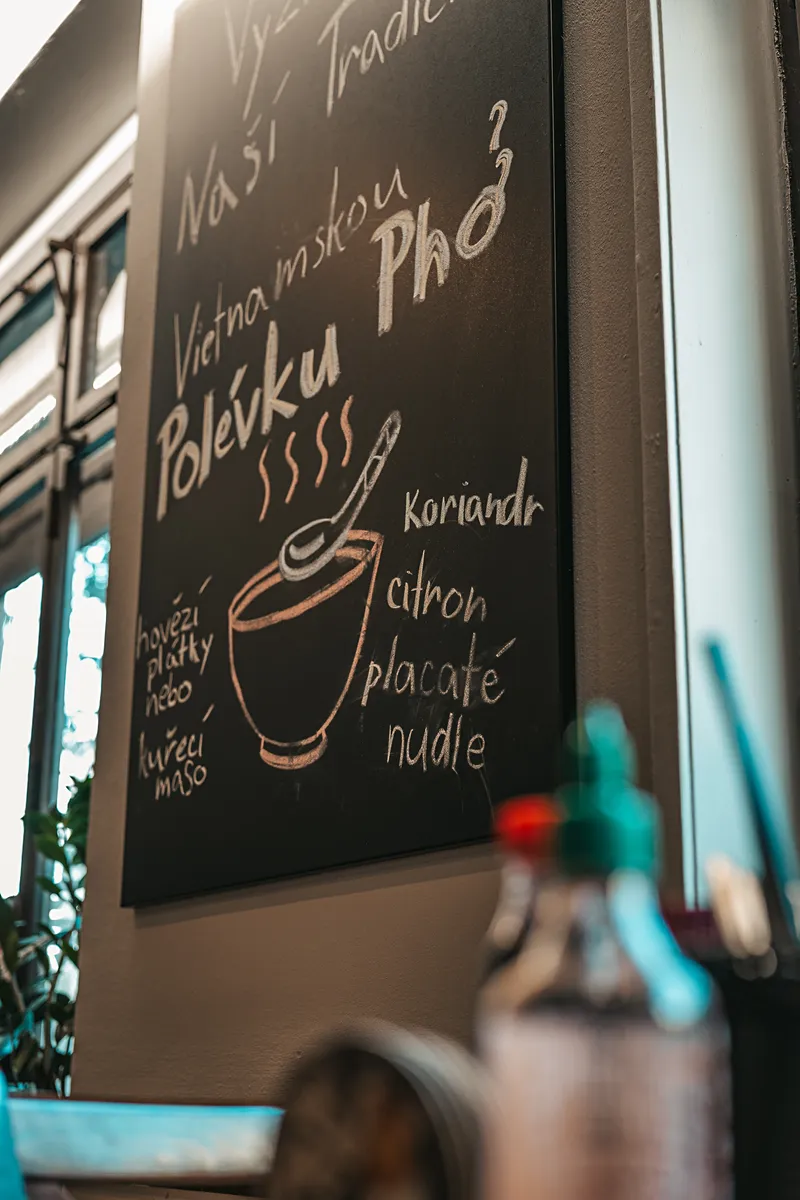 Naší
Vietnamskou
Polévku Phở
Koriandr
citron
placaté
nudle
hovězí
plátky
nebo
kuřecí
maso